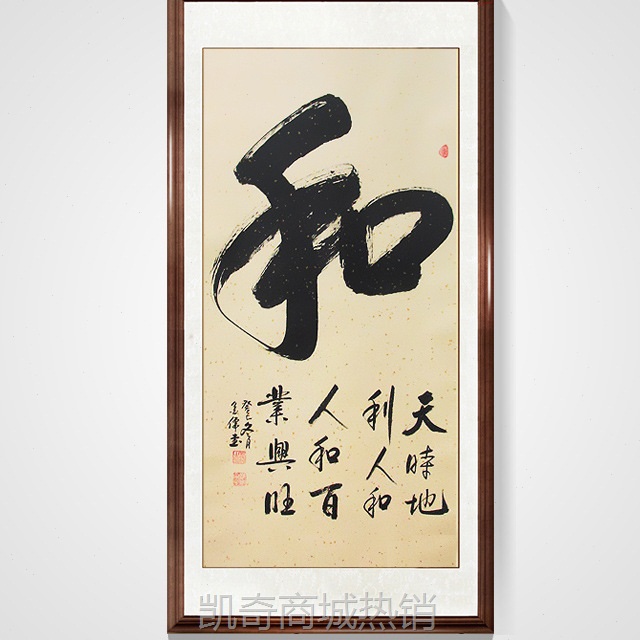 和
天時地
利人和
人和百
業興旺
癸巳冬月
凯奇商城热销